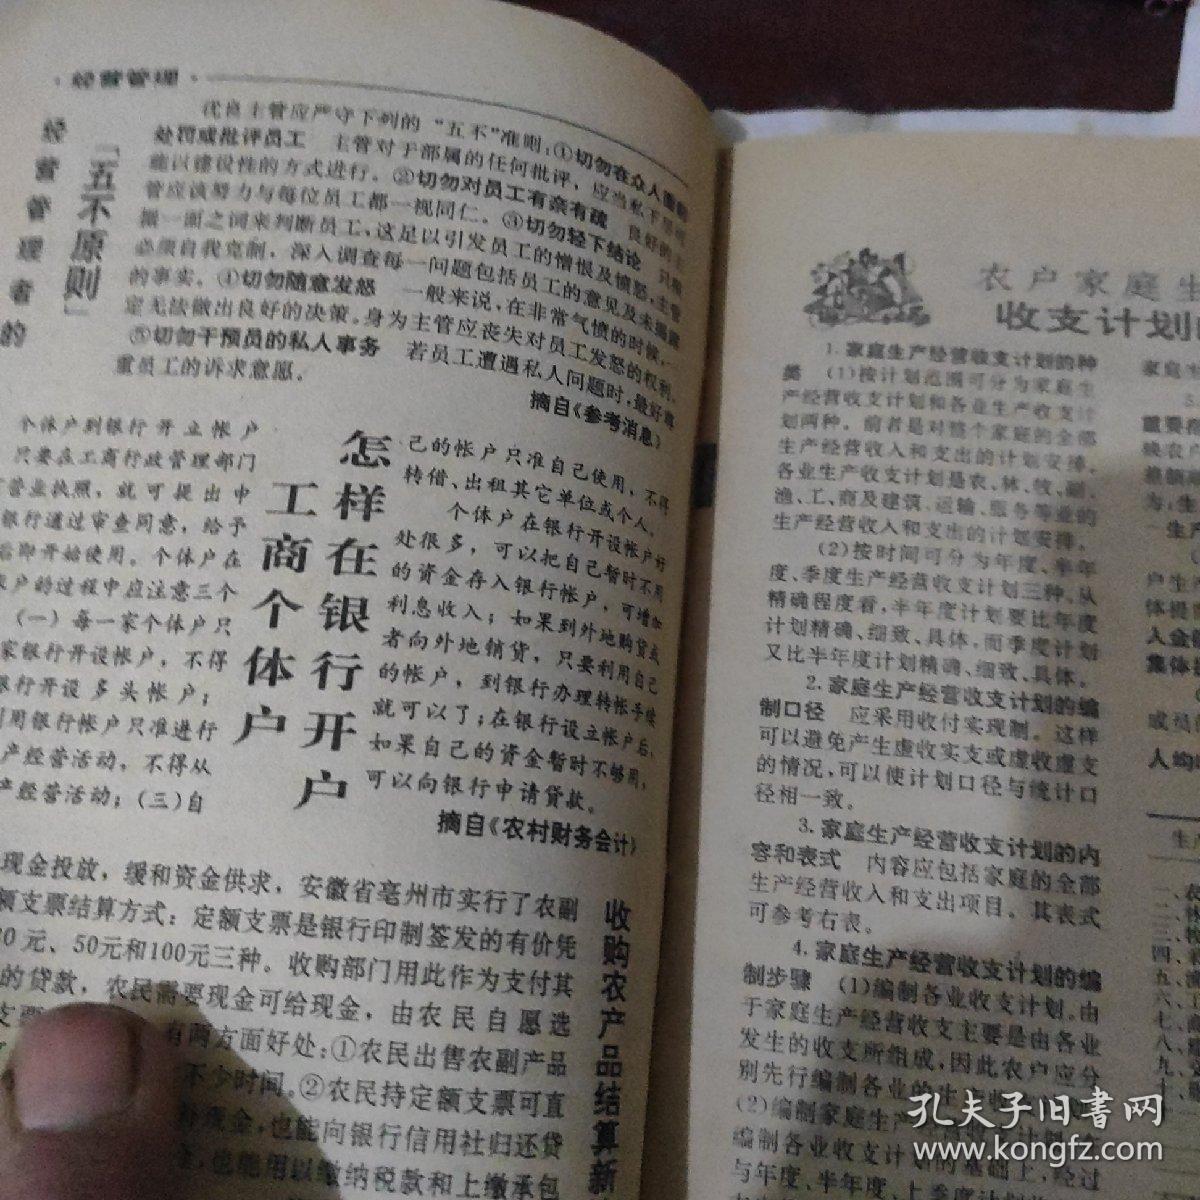 ·经营管理·
经营管理者的
「五不原则」
优良主管应严守下列的“五不”准则：①切勿在众人面前
处罚或批评员工 主管对于部属的任何批评，应当私下里尽
能以建设性的方式进行。②切勿对员工有亲有疏 良好的主
管应该努力与每位员工都一视同仁。③切勿轻下结论 只
据一面之词来判断员工，这足以引发员工的憎恨及愤怒，主管
必须自我克制，深入调查每一问题包括员工的意见及未揭露
的事实。④切勿随意发怒 一般来说，在非常气愤的时候，
定无法做出良好的决策。身为主管应丧失对员工发怒的权利。
⑤切勿干预员的私人事务 若员工遭遇私人问题时，最好尊
重员工的诉求意愿。
摘自《参考消息》
怎样在银行开户
工商个体户
个体户到银行开立帐户
只要在工商行政管理部门
营业执照，就可提出申
银行通过审查同意，给予
后即开始使用。个体户在
户的过程中应注意三个
（一）每一家个体户只
家银行开设帐户，不得
银行开设多头帐户；
利用银行帐户只准进行
产经营活动，不得从
产经营活动；（三）自
己的帐户只准自己使用，不得
转借、出租其它单位或个人。
个体户在银行开设帐户好
处很多，可以把自己暂时不用
的资金存入银行帐户，可增加
利息收入；如果到外地购货或
者向外地销货，只要利用自己
的帐户，到银行办理转帐手续
就可以了；在银行设立帐户后，
如果自己的资金暂时不够用，
可以向银行申请贷款。
摘自《农村财务会计》
收购农产品结算新
现金投放，缓和资金供求，安徽省亳州市实行了农副
额支票结算方式：定额支票是银行印制签发的有价凭
元、50元和100元三种。收购部门用此作为支付其
的贷款，农民需要现金可给现金，由农民自愿选
支票 有两方面好处：①农民出售农副产品
不少时间。②农民持定额支票可直
现金，也能向银行信用社归还贷
，也能用以缴纳税款和上缴承包
农户家庭生
收支计划
1.家庭生产经营收支计划的种
类 （1）按计划范围可分为家庭生
产经营收支计划和各业生产收支计
划两种。前者是对整个家庭的全部
生产经营收入和支出的计划安排。
各业生产收支计划是农、林、牧、副、
渔、工、商及建筑、运输、服务等业的
生产经营收入和支出的计划安排。
（2）按时间可分为年度、半年
度、季度生产经营收支计划三种。从
精确程度看，半年度计划要比年度
计划精确、细致、具体，而季度计划
又比半年度计划精确、细致、具体。
2.家庭生产经营收支计划的编
制口径 应采用收付实现制。这样
可以避免产生虚收实支或虚收虚支
的情况，可以使计划口径与统计口
径相一致。
3.家庭生产经营收支计划的内
容和表式 内容应包括家庭的全部
生产经营收入和支出项目。其表式
可参考右表。
4.家庭生产经营收支计划的编
制步骤 （1）编制各业收支计划。由
于家庭生产经营收支主要是由各业
发生的收支所组成，因此农户应分
别先行编制各业的
（2）编制家庭生产
编制各业收支计划的基础上，经过
与年度、半年度、上季度
家庭生
5.
重要
映农户
为：生
生产
户生
体提
人金
集体
成员
人均
生产
一、农
二、
三、牧
四、
五、
六、工
七、
八、
九、
十、
孔夫子旧书网
www.kongfz.com